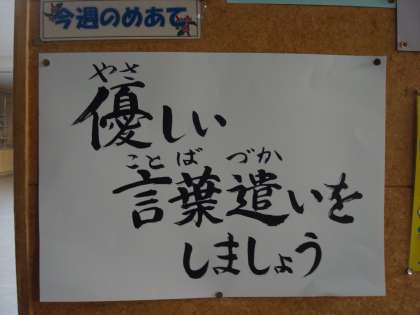 今週のめあて
やさ
優しい
ことば づか
言葉遣いを
しましょう